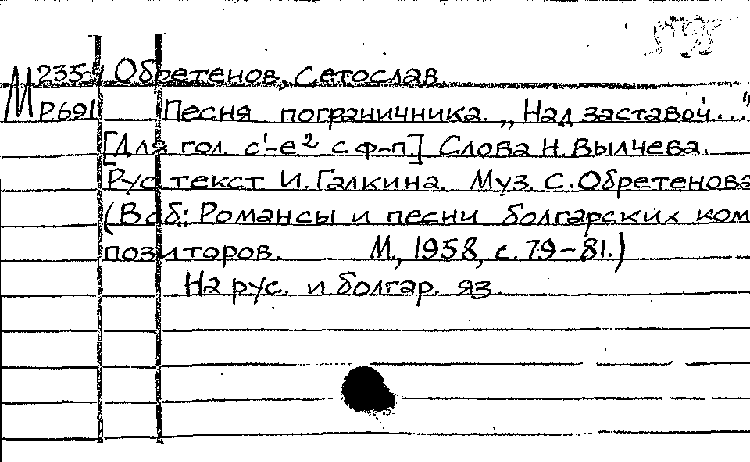 М 235 Обретенов, Сетослав
Р691 Песня пограничника. „Над заставой..."
[Для гол. с¹-е² с ф-п] Слова Н. Вылчева.
Рус. текст И. Галкина. Муз. С. Обретенова
(В сб: Романсы и песни болгарских ком
позиторов. М., 1958, с. 79-81.)
На рус. и болгар. яз.